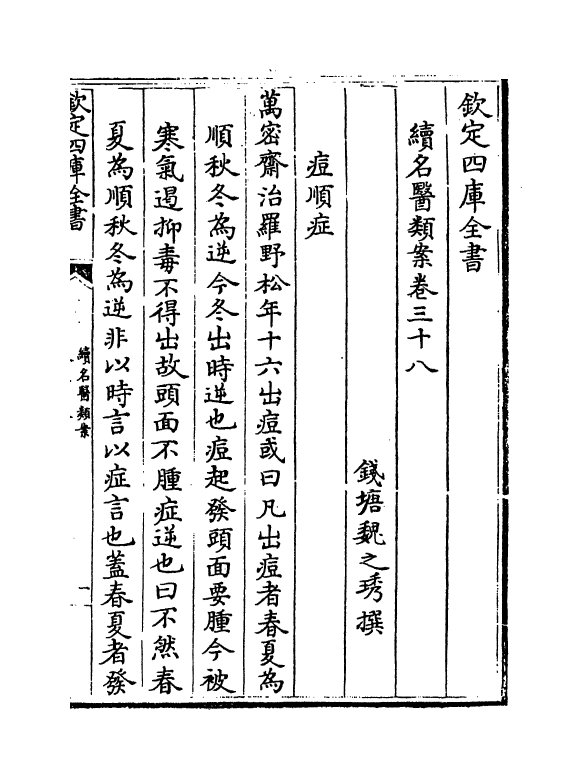 欽定四庫全書
續名醫類案卷三十八
錢塘魏之琇撰
痘順症
萬密齋治羅野松年十六出痘或曰凡出痘者春夏為
順秋冬為逆今冬出時逆也痘起發頭面要腫今被
寒氣遏抑毒不得出故頭面不腫症逆也曰不然春
夏為順秋冬為逆非以時言以症言也蓋春夏者發
欽定四庫全書
續名醫類案
一